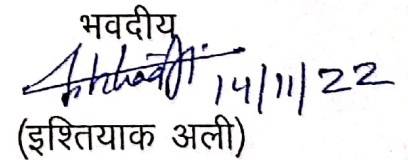 भवदीय
14/11/22
(इश्तियाक अली)